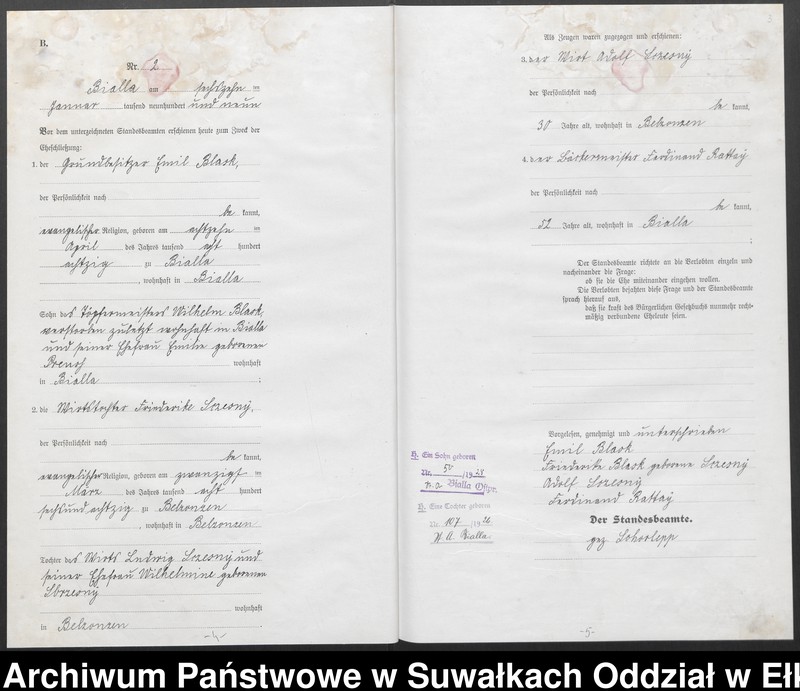 B.
Nr. 2
Bialla am sechzehn ten
Januar tausend neunhundert und neun
Vor dem unterzeichneten Standesbeamten erschienen heute zum Zweck der
Eheschließung:
1. der Grundbesitzer Emil Blask,
der Persönlichkeit nach
be kannt,
evangelischer Religion, geboren am achtzehn ten
April des Jahres tausend acht hundert
achtzig zu Bialla
, wohnhaft in Bialla
Sohn des Töpfermeisters Wilhelm Blask,
verstorben zuletzt wohnhaft in Bialla
und seiner Ehefrau Emilie geborenen
wohnhaft
in Bialla .
2. die Wirtstochter Friederike Sczesny,
der Persönlichkeit nach
be kannt,
evangelischer Religion, geboren am zwanzigst en
März des Jahres tausend acht hundert
sechsundachtzig zu Belzonzen
, wohnhaft in Belzonzen
Tochter des Wirts Ludwig Sczesny und
seiner Ehefrau Wilhelmine geborenen
wohnhaft
in Belzonzen .
-4-
Als Zeugen waren zugezogen und erschienen:
3. der Wirt Adolf Sczesny
der Persönlichkeit nach
be kannt,
30 Jahre alt, wohnhaft in Belzonzen
4. der Bäckermeister Ferdinand Rattay
der Persönlichkeit nach
be kannt,
52 Jahre alt, wohnhaft in Bialla
Der Standesbeamte richtete an die Verlobten einzeln und
nacheinander die Frage:
ob sie die Ehe miteinander eingehen wollen.
Die Verlobten bejahten diese Frage und der Standesbeamte
sprach hierauf aus,
daß sie kraft des Bürgerlichen Gesetzbuchs nunmehr recht-
mäßig verbundene Eheleute seien.
Vorgelesen, genehmigt und unterschrieben
Emil Blask
Friederike Blask geborene Sczesny
Adolf Sczesny
Ferdinand Rattay
Der Standesbeamte.
gez Schorlepp
Ein Sohn geboren
Nr. 50 /1924
Bialla Ostpr.
Eine Tochter geboren
Nr. 107 /1926
Bialla.
-5-
Archiwum Państwowe w Suwałkach Oddział w Eł